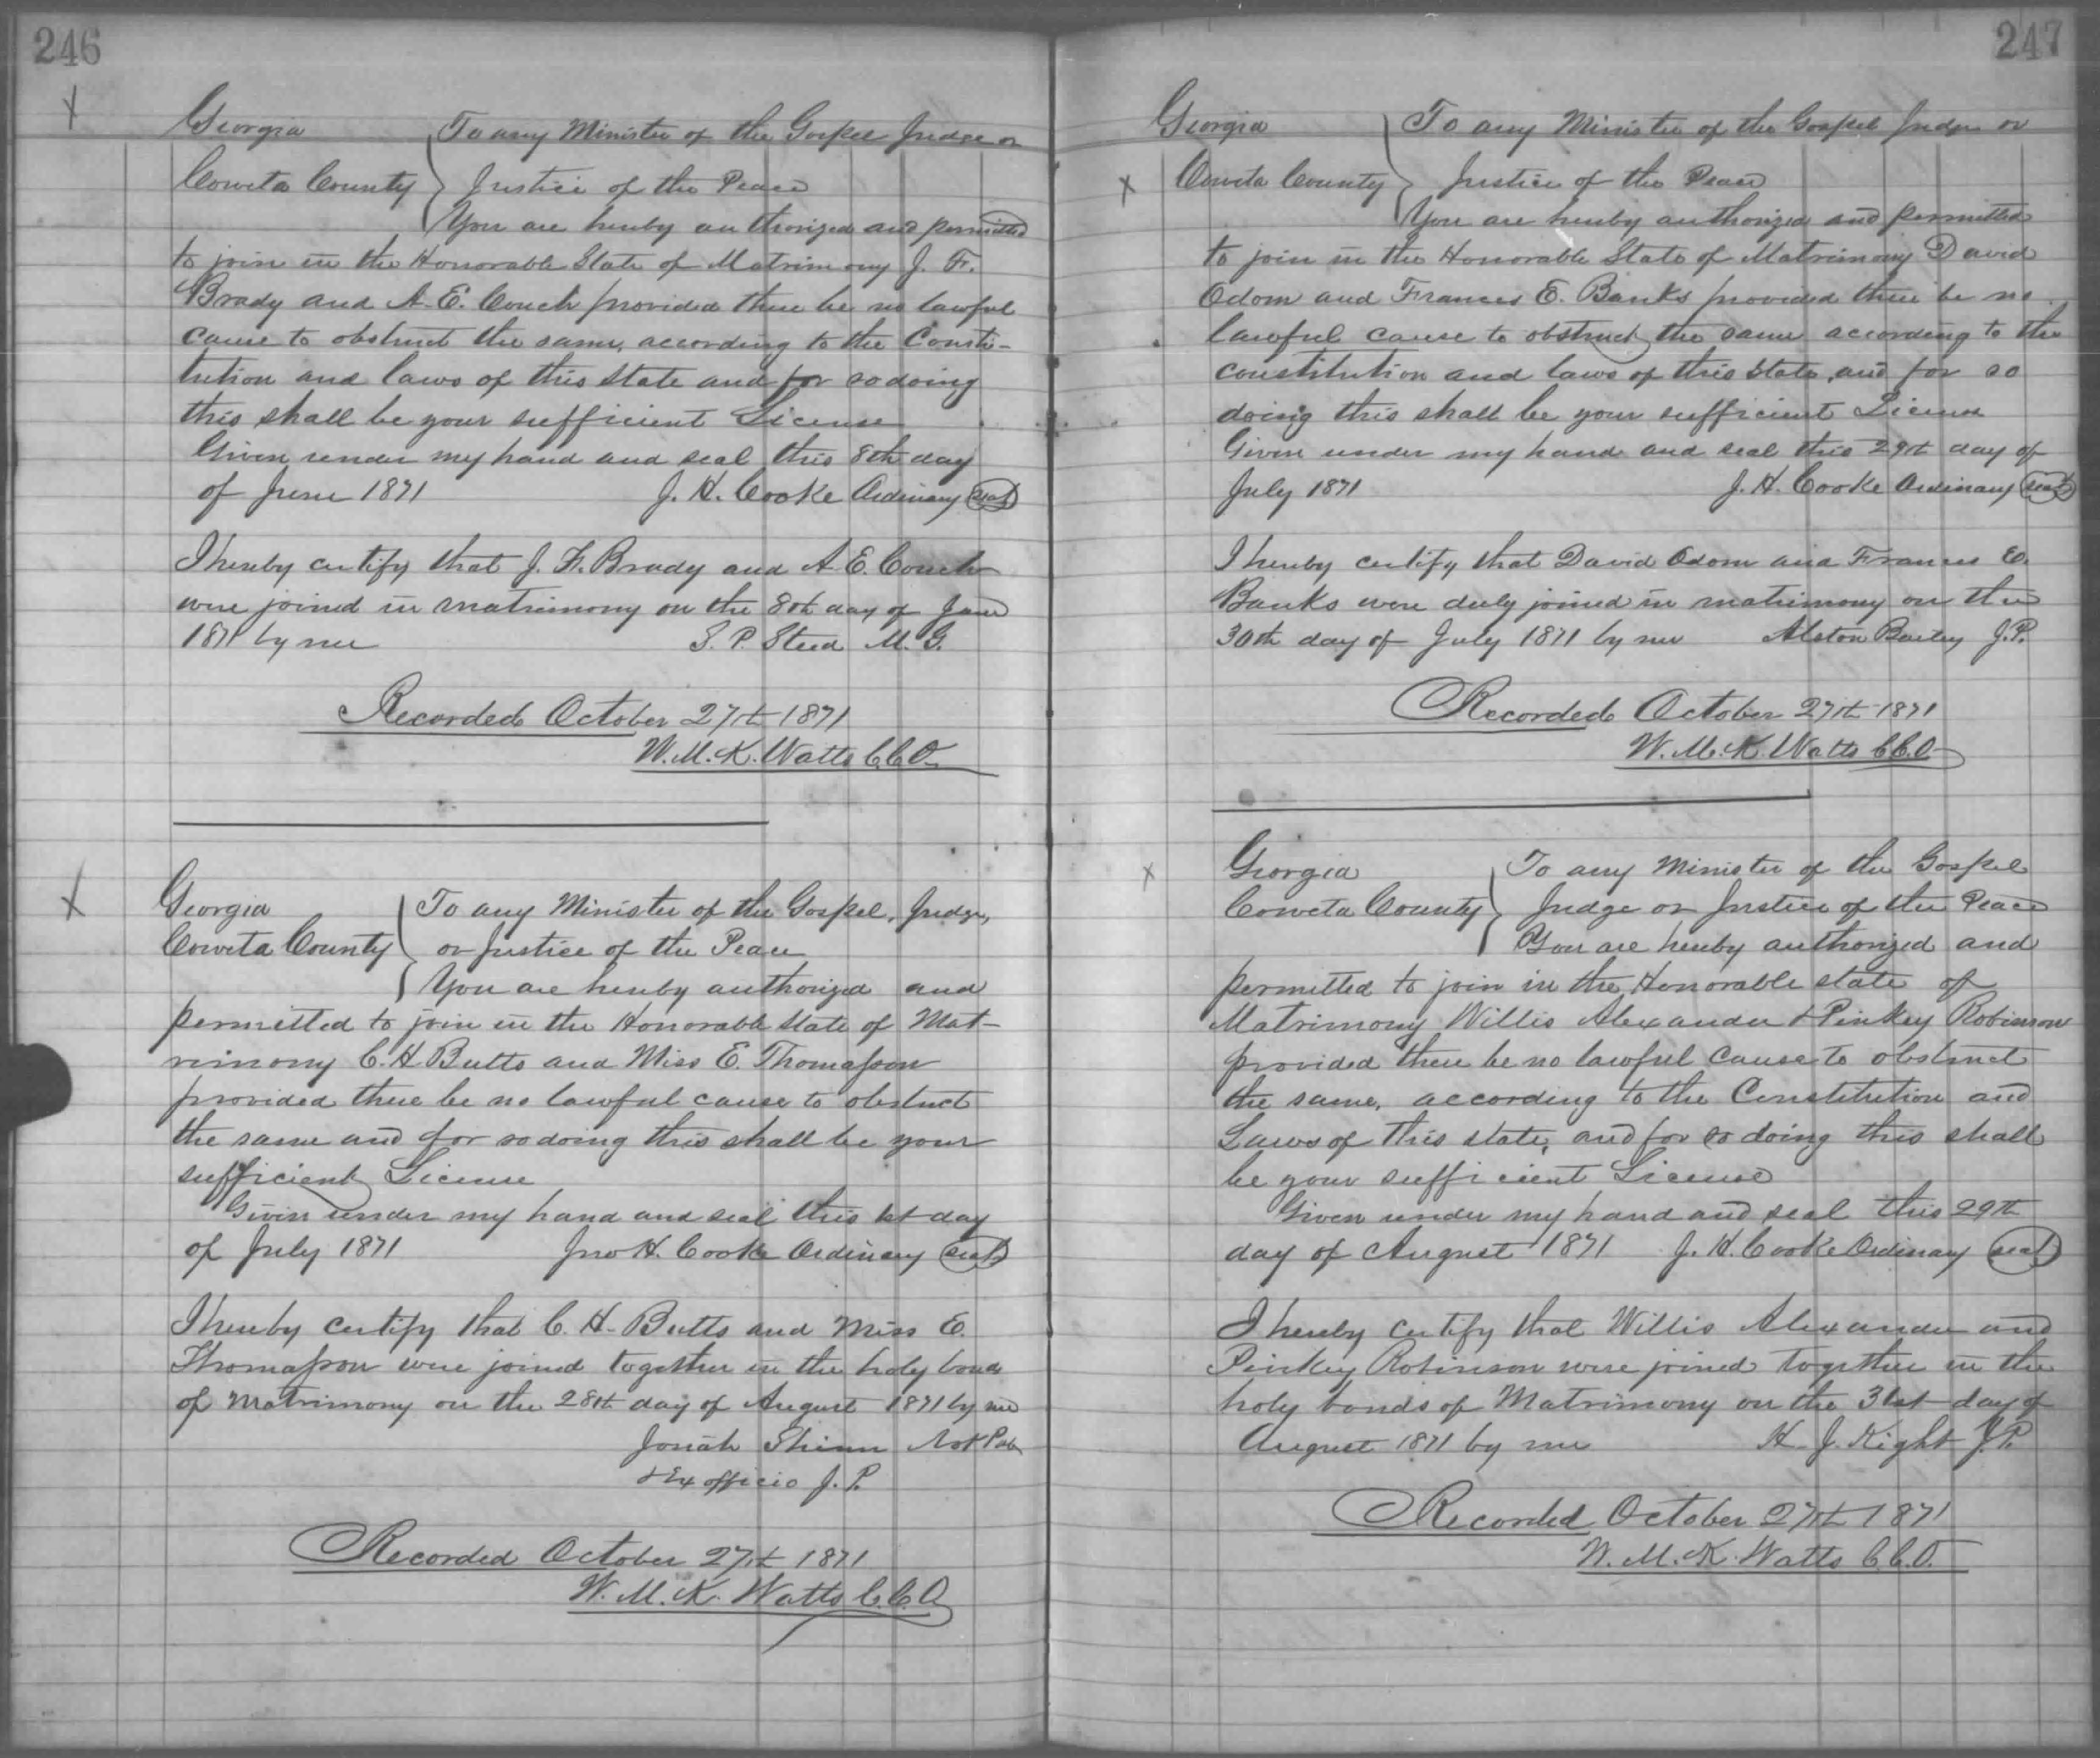 246
Georgia To any Minister of the Gospel Judge or
Coweta County Justice of the Peace
You are hereby authorized and permitted
to join in the Honorable State of Matrimony J. F.
Brady and A. E. Couch provided there be no lawful
cause to obstruct the same, according to the Consti-
tution and laws of this State and for so doing
this shall be your sufficient License
Given under my hand and seal this 8th day
of June 1871 J. H. Cooke Ordinary seal
I hereby certify that J. F. Brady and A. E. Couch
were joined in matrimony on the 8th day of June
1871 by me S. P. Steed M. G.
Recorded October 27th 1871
W. M. K. Watts C.C.O.
Georgia To any Minister of the Gospel, Judge,
Coweta County or Justice of the Peace
You are hereby authorized and
permitted to join in the Honorable State of Mat-
rimony C. H. Butts and Miss E. Thomasson
provided there be no lawful cause to obstruct
the same and for so doing this shall be your
sufficient License
Given under my hand and seal this 1st day
of July 1871 Jno H. Cooke Ordinary seal
I hereby certify that C. H. Butts and Miss E.
Thomasson were joined together in the holy bond
of Matrimony on the 28th day of August 1871 by me
Josiah Shinn Not Pub
& Ex officio J. P.
Recorded October 27th 1871
W. M. K. Watts C.C.O
247
Georgia To any Minister of the Gospel Judge or
Coweta County Justice of the Peace
You are hereby authorized and permitted
to join in the Honorable State of Matrimony David
Odom and Frances E. Banks provided there be no
lawful cause to obstruct the same according to the
constitution and laws of this State, and for so
doing this shall be your sufficient License
Given under my hand and seal this 29th day of
July 1871 J. H. Cooke Ordinary seal
I hereby certify that David Odom and Frances E.
Banks were duly joined in matrimony on the
30th day of July 1871 by me Alston Bailey J.P.
Recorded October 27th 1871
W. M. K. Watts C.C.O
Georgia To any Minister of the Gospel
Coweta County Judge or Justice of the Peace
You are hereby authorized and
permitted to join in the Honorable state of
Matrimony Willis Alexander & Pinkey Robinson
provided there be no lawful cause to obstruct
the same, according to the Constitution and
Laws of this state, and for so doing this shall
be your sufficient License
Given under my hand and seal this 29th
day of August 1871 J. H. Cooke Ordinary seal
I hereby certify that Willis Alexander and
Pinkey Robinson were joined together in the
holy bonds of Matrimony on the 31st day of
August 1871 by me H. J. Kight J.P.
Recorded October 27th 1871
W. M. K. Watts C.C.O.